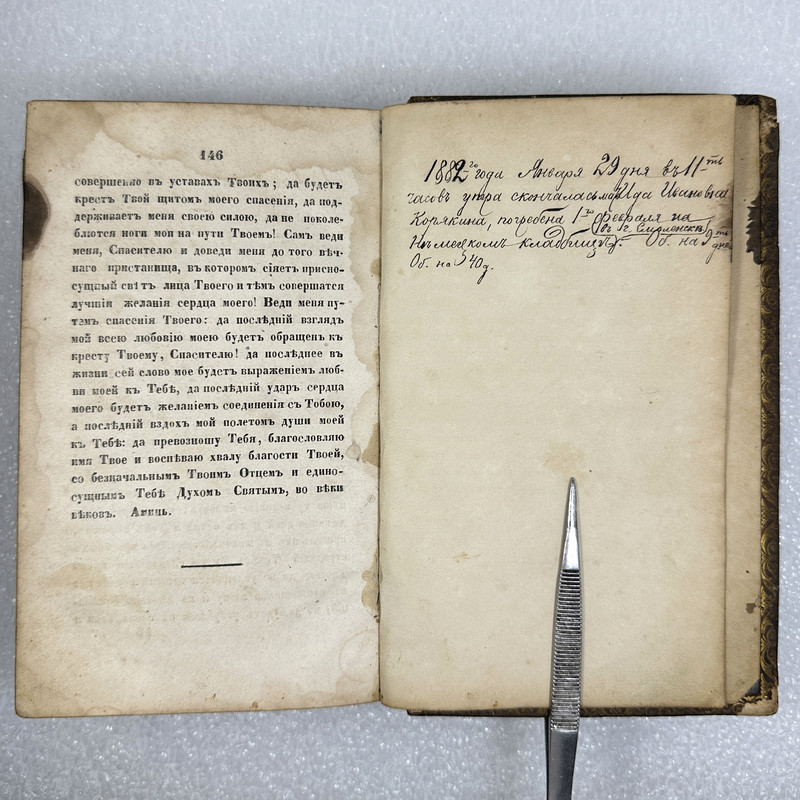 146
совершенно въ уставахъ Твоихъ; да будетъ
крестъ Твой щитомъ моего спасенія, да под-
держиваетъ меня своею силою, да не поколе-
блются ноги мои на пути Твоемъ! Самъ веди
меня, Спасителю и доведи меня до того вѣч-
наго пристанища, въ которомъ сіяетъ присно-
сущный свѣтъ лица Твоего и тѣмъ совершатся
лучшія желанія сердца моего! Веди меня пу-
темъ спасенія Твоего: да послѣдній взглядъ
мой всею любовію моею будетъ обращенъ къ
кресту Твоему, Спасителю! да послѣднее въ
жизни сей слово мое будетъ выраженіемъ люб-
ви моей къ Тебѣ, да послѣдній ударъ сердца
моего будетъ желаніемъ соединенія съ Тобою,
а послѣдній вздохъ мой полетомъ души моей
къ Тебѣ: да превозношу Тебя, благословляю
имя Твое и воспѣваю хвалу благости Твоей,
со безначальнымъ Твоимъ Отцемъ и едино-
сущнымъ Тебѣ Духомъ Святымъ, во вѣки
вѣковъ. Аминь.
1882го года Января 29 дня въ 11-ть
часовъ утра скончалась Ида Ивановна
Корякина, погребена 1го февраля на
въ г. Смоленскѣ
Нѣмецкомъ кладбищѣ. Об. на 9ть дней
Об. на 40 д.